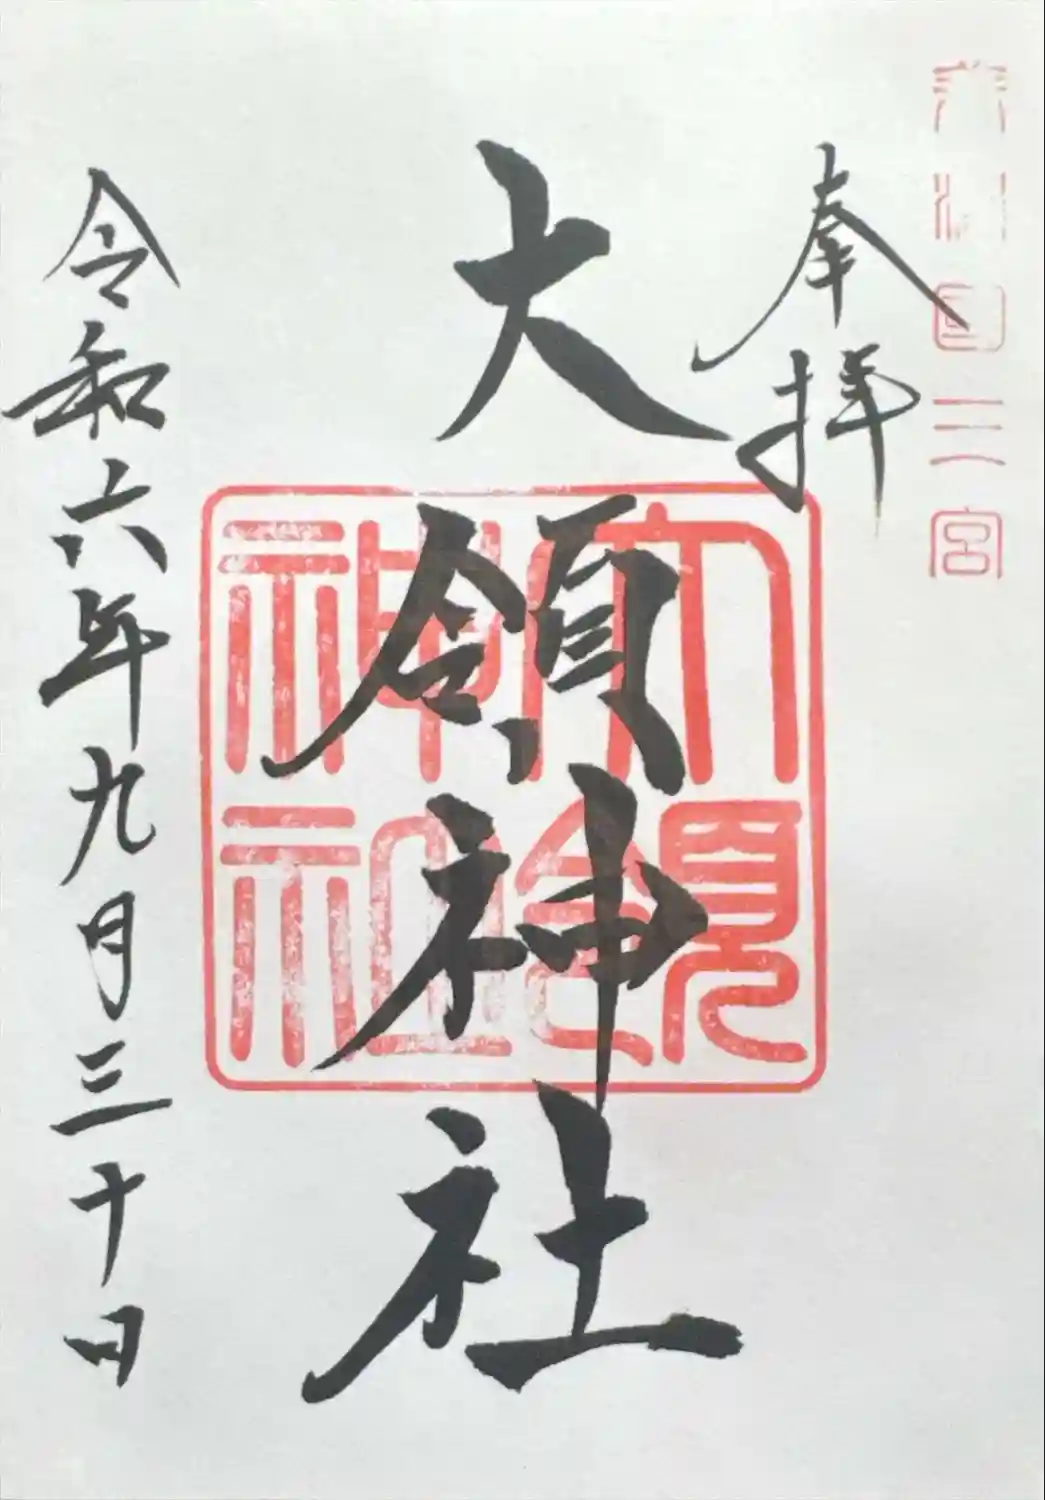 國三宮
奉拝
大領神社
大領
神社
令和六年九月三十日